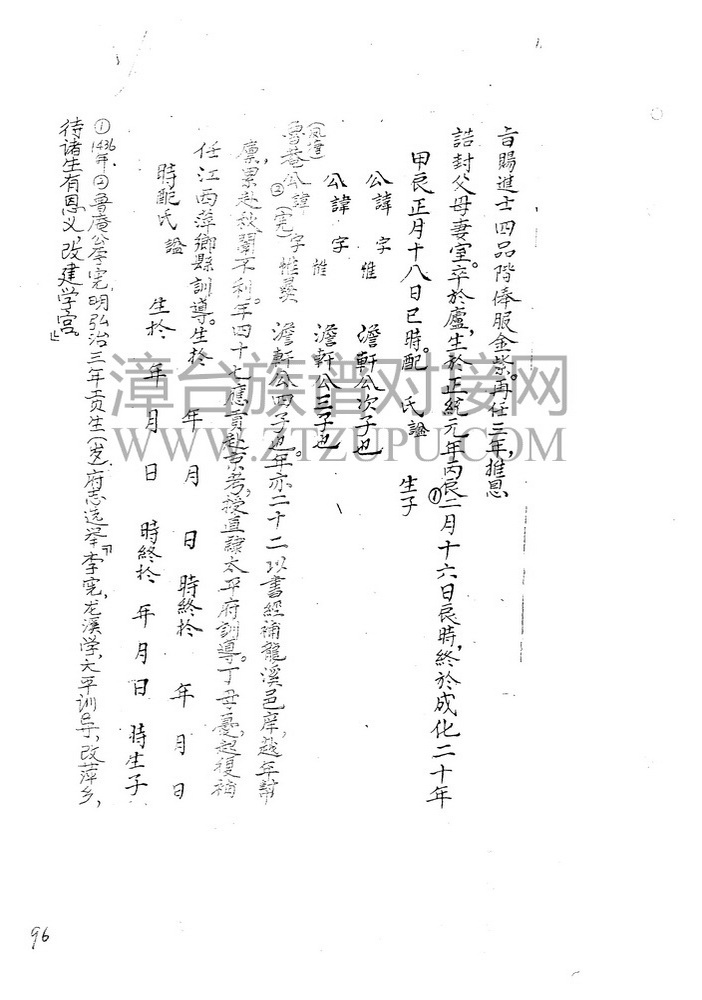 旨賜進士四品階俸服金紫。再任三年,推恩
誥封父母妻室。卒於廬,生於正統元年丙辰①二月十六日辰時,終於成化二十年
甲辰正月十八日巳時。配 氏謚 生子
公諱 字 惟 澹軒公次子也
公諱 字 惟 澹軒公三子也
(鳳壇)
魯菴公諱②(宪) 字惟 澹軒公四子也。年亦二十二以書經補龍溪邑庠,越年幇
廩,累赴秋闈不利。年四十七應貢赴京考,授直隷太平府訓導。丁母憂,起復補
任江西萍鄉縣訓導。生於 年 月 日 時終於 年 月 日
時配氏謚 生於 年 月 日 時終於 年 月 日 時生子
①1436年、②魯庵公李宪,明弘治三年贡生(岁)府志选举「李宪,龙溪学,太平训导,改萍乡,
待诸生有恩义,改建学宫。」
96
漳台族谱对接网
WWW.ZTZUPU.COM